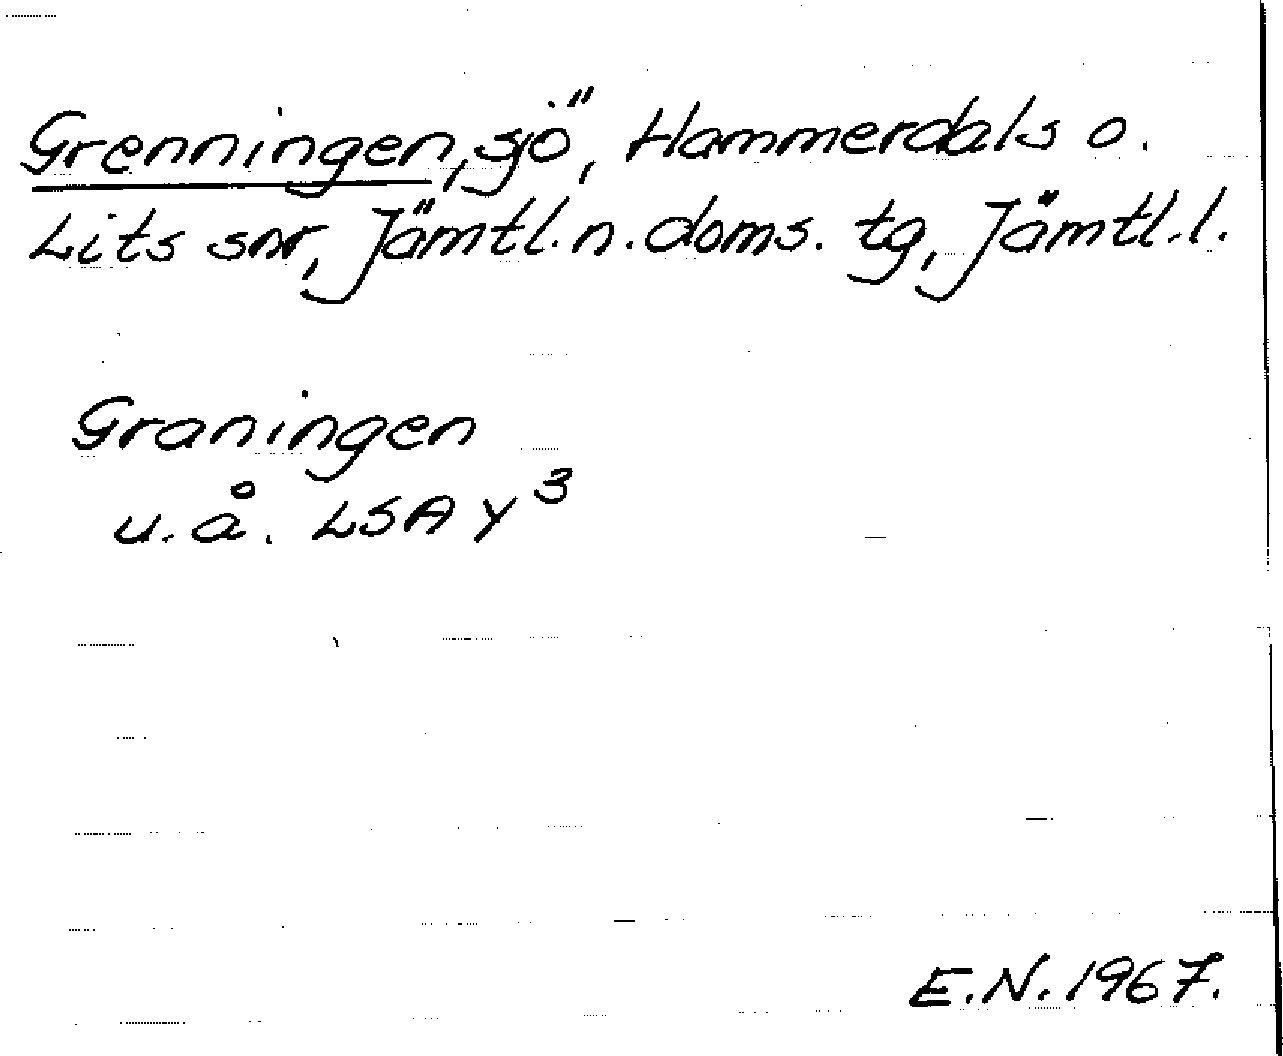 Grenningen, sjö, Hammerdals o.
Lits snr, Jämtl. n. doms. tg, Jämtl. l.
Graningen
u. å. LSA Y 3
E.N. 1967.